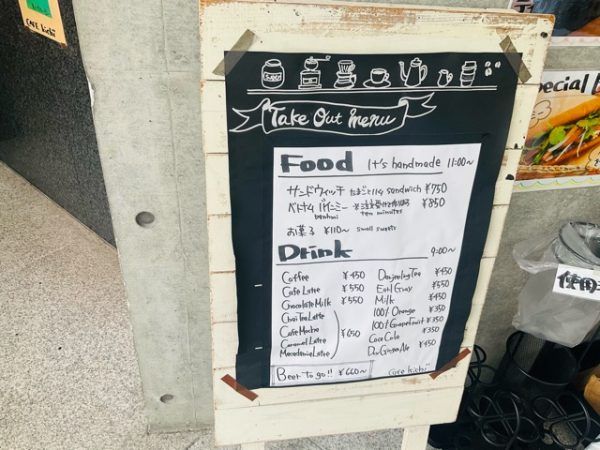 CAFE kichi
Take Out menu
Food It's handmade 11:00~
サンドウィッチ たまごと sandwich ¥750
ベトナム バインミー ten minutes ¥850
お菓子 ¥110~ small sweets
Drink 9:00~
Coffee ¥450
Cafe Latte ¥550
Chocolate Milk ¥550
Chai Tea Latte
Cafe Mocha
Caramel Latte
Macadamia Latte
¥650
Darjeeling Tea ¥450
Earl Gray ¥550
Milk ¥450
100% Orange ¥350
100% Grapefruit ¥350
Coca Cola ¥350
Dry Ginger Ale ¥450
Beer To go!! ¥660~
cafe kichi
pecial